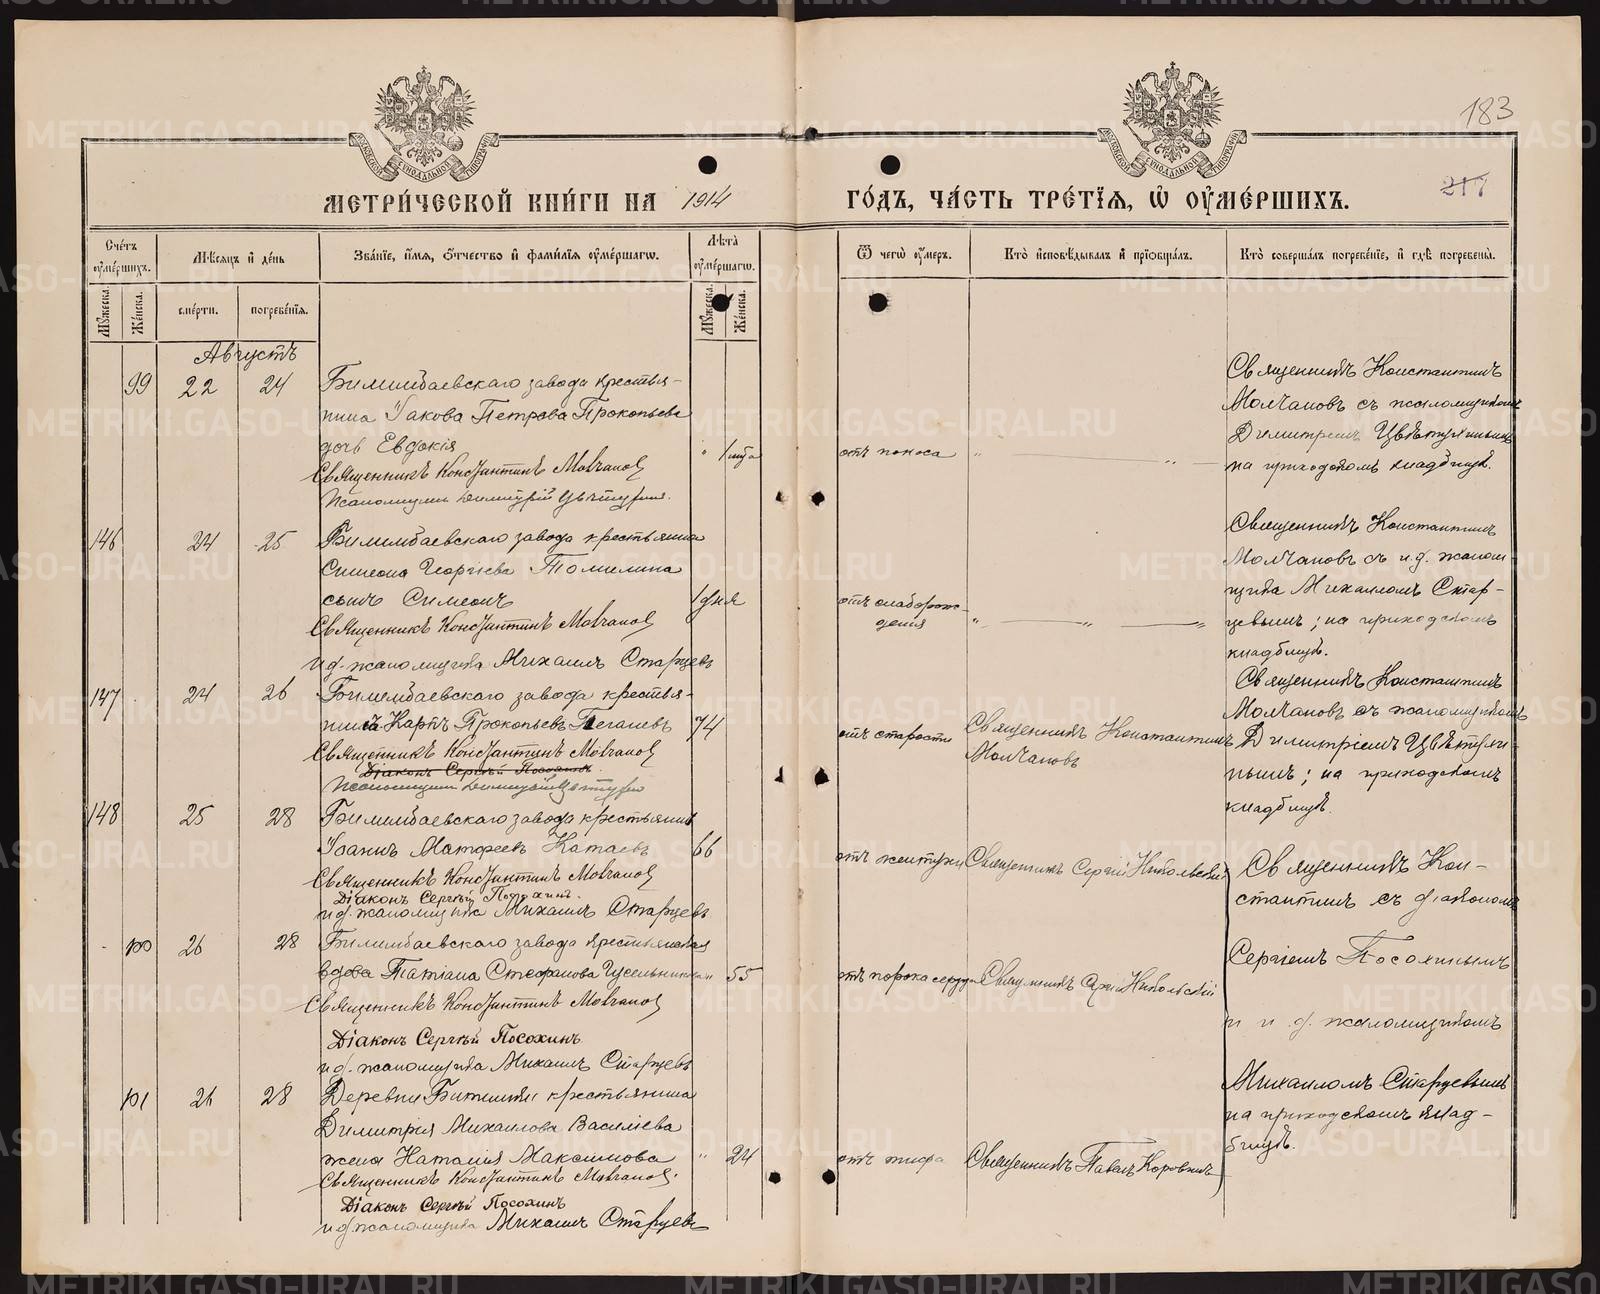 183
217
МЕТРИ́ЧЕСКОЙ КНИ́ГИ НА 1914 ГО́ДЪ, ЧА́СТЬ ТРЕ́ТІЯ, Ѡ ОУМЕ́РШИХЪ.
Счетъ оумершихъ.
Мѣсяцъ и день
Званіе, имя, отчество и фамилія оумершагѡ.
Лѣта оумершагѡ.
Ѿ чегѡ оумеръ.
Кто исповѣдывалъ и пріобщалъ.
Кто совершалъ погребеніе, и гдѣ погребены.
Мужеска.
Женска.
смерти.
погребенія.
Мужеска.
Женска.
Августъ
99 22 24 Билимбаевскаго завода крестья-
нина Іакова Петрова Прокопьева
дочь Евдокія " 1 мца отъ поноса " "
Священникъ Константинъ Молчановъ
Псаломщикъ Димитрій Цвѣтухинъ.
Священникъ Константинъ
Молчановъ съ псаломщикомъ
Димитріемъ Цвѣтухинымъ
на приходскомъ кладбищѣ.
146 24 25 Билимбаевскаго завода крестьянина
Симеона Георгіева Томилина
сынъ Симеонъ 1 дня отъ слаборож-
денія " " "
Священникъ Константинъ Молчановъ
и д. псаломщика Михаилъ Старцевъ
Священникъ Константинъ
Молчановъ съ и.д. псалом-
щика Михаиломъ Стар-
цевымъ; на приходскомъ
кладбищѣ.
147 24 26 Билимбаевскаго завода крестья-
нинъ Карпъ Прокопьевъ 74 отъ старости Священникъ Константинъ
Молчановъ
Священникъ Константинъ Молчановъ
Діаконъ Сергѣй Посохинъ.
Псаломщикъ Димитрій Цвѣтухинъ
Священникъ Константинъ
Молчановъ съ псаломщикомъ
Димитріемъ Цвѣтухи-
нымъ; на приходскомъ
кладбищѣ.
148 25 28 Билимбаевскаго завода крестьянинъ
Іоаннъ Матфеевъ Катаевъ 66 отъ желтухи Священникъ Сергій Никольскій
Священникъ Константинъ Молчановъ
Діаконъ Сергѣй Посохинъ.
и д. псаломщика Михаилъ Старцевъ
100 26 28 Билимбаевскаго завода крестьянская
вдова Татіана Стефанова Гусельникова " 55 отъ порока сердца Священникъ Сергій Никольскій
Священникъ Константинъ Молчановъ
Діаконъ Сергѣй Посохинъ
и д. псаломщика Михаилъ Старцевъ
101 26 28 Деревни Битимки крестьянина
Димитрія Михаилова Василіева
жена Наталія Максимова " 24 отъ тифа Священникъ Павелъ Коровинъ
Священникъ Константинъ Молчановъ.
Діаконъ Сергѣй Посохинъ
и д. псаломщика Михаилъ Старцевъ
Священникъ Кон-
стантинъ съ діакономъ
Сергіемъ Посохинымъ
и и. д. псаломщикомъ
Михаиломъ Старцевымъ
на приходскомъ клад-
бищѣ.
METRIKI.GASO-URAL.RU